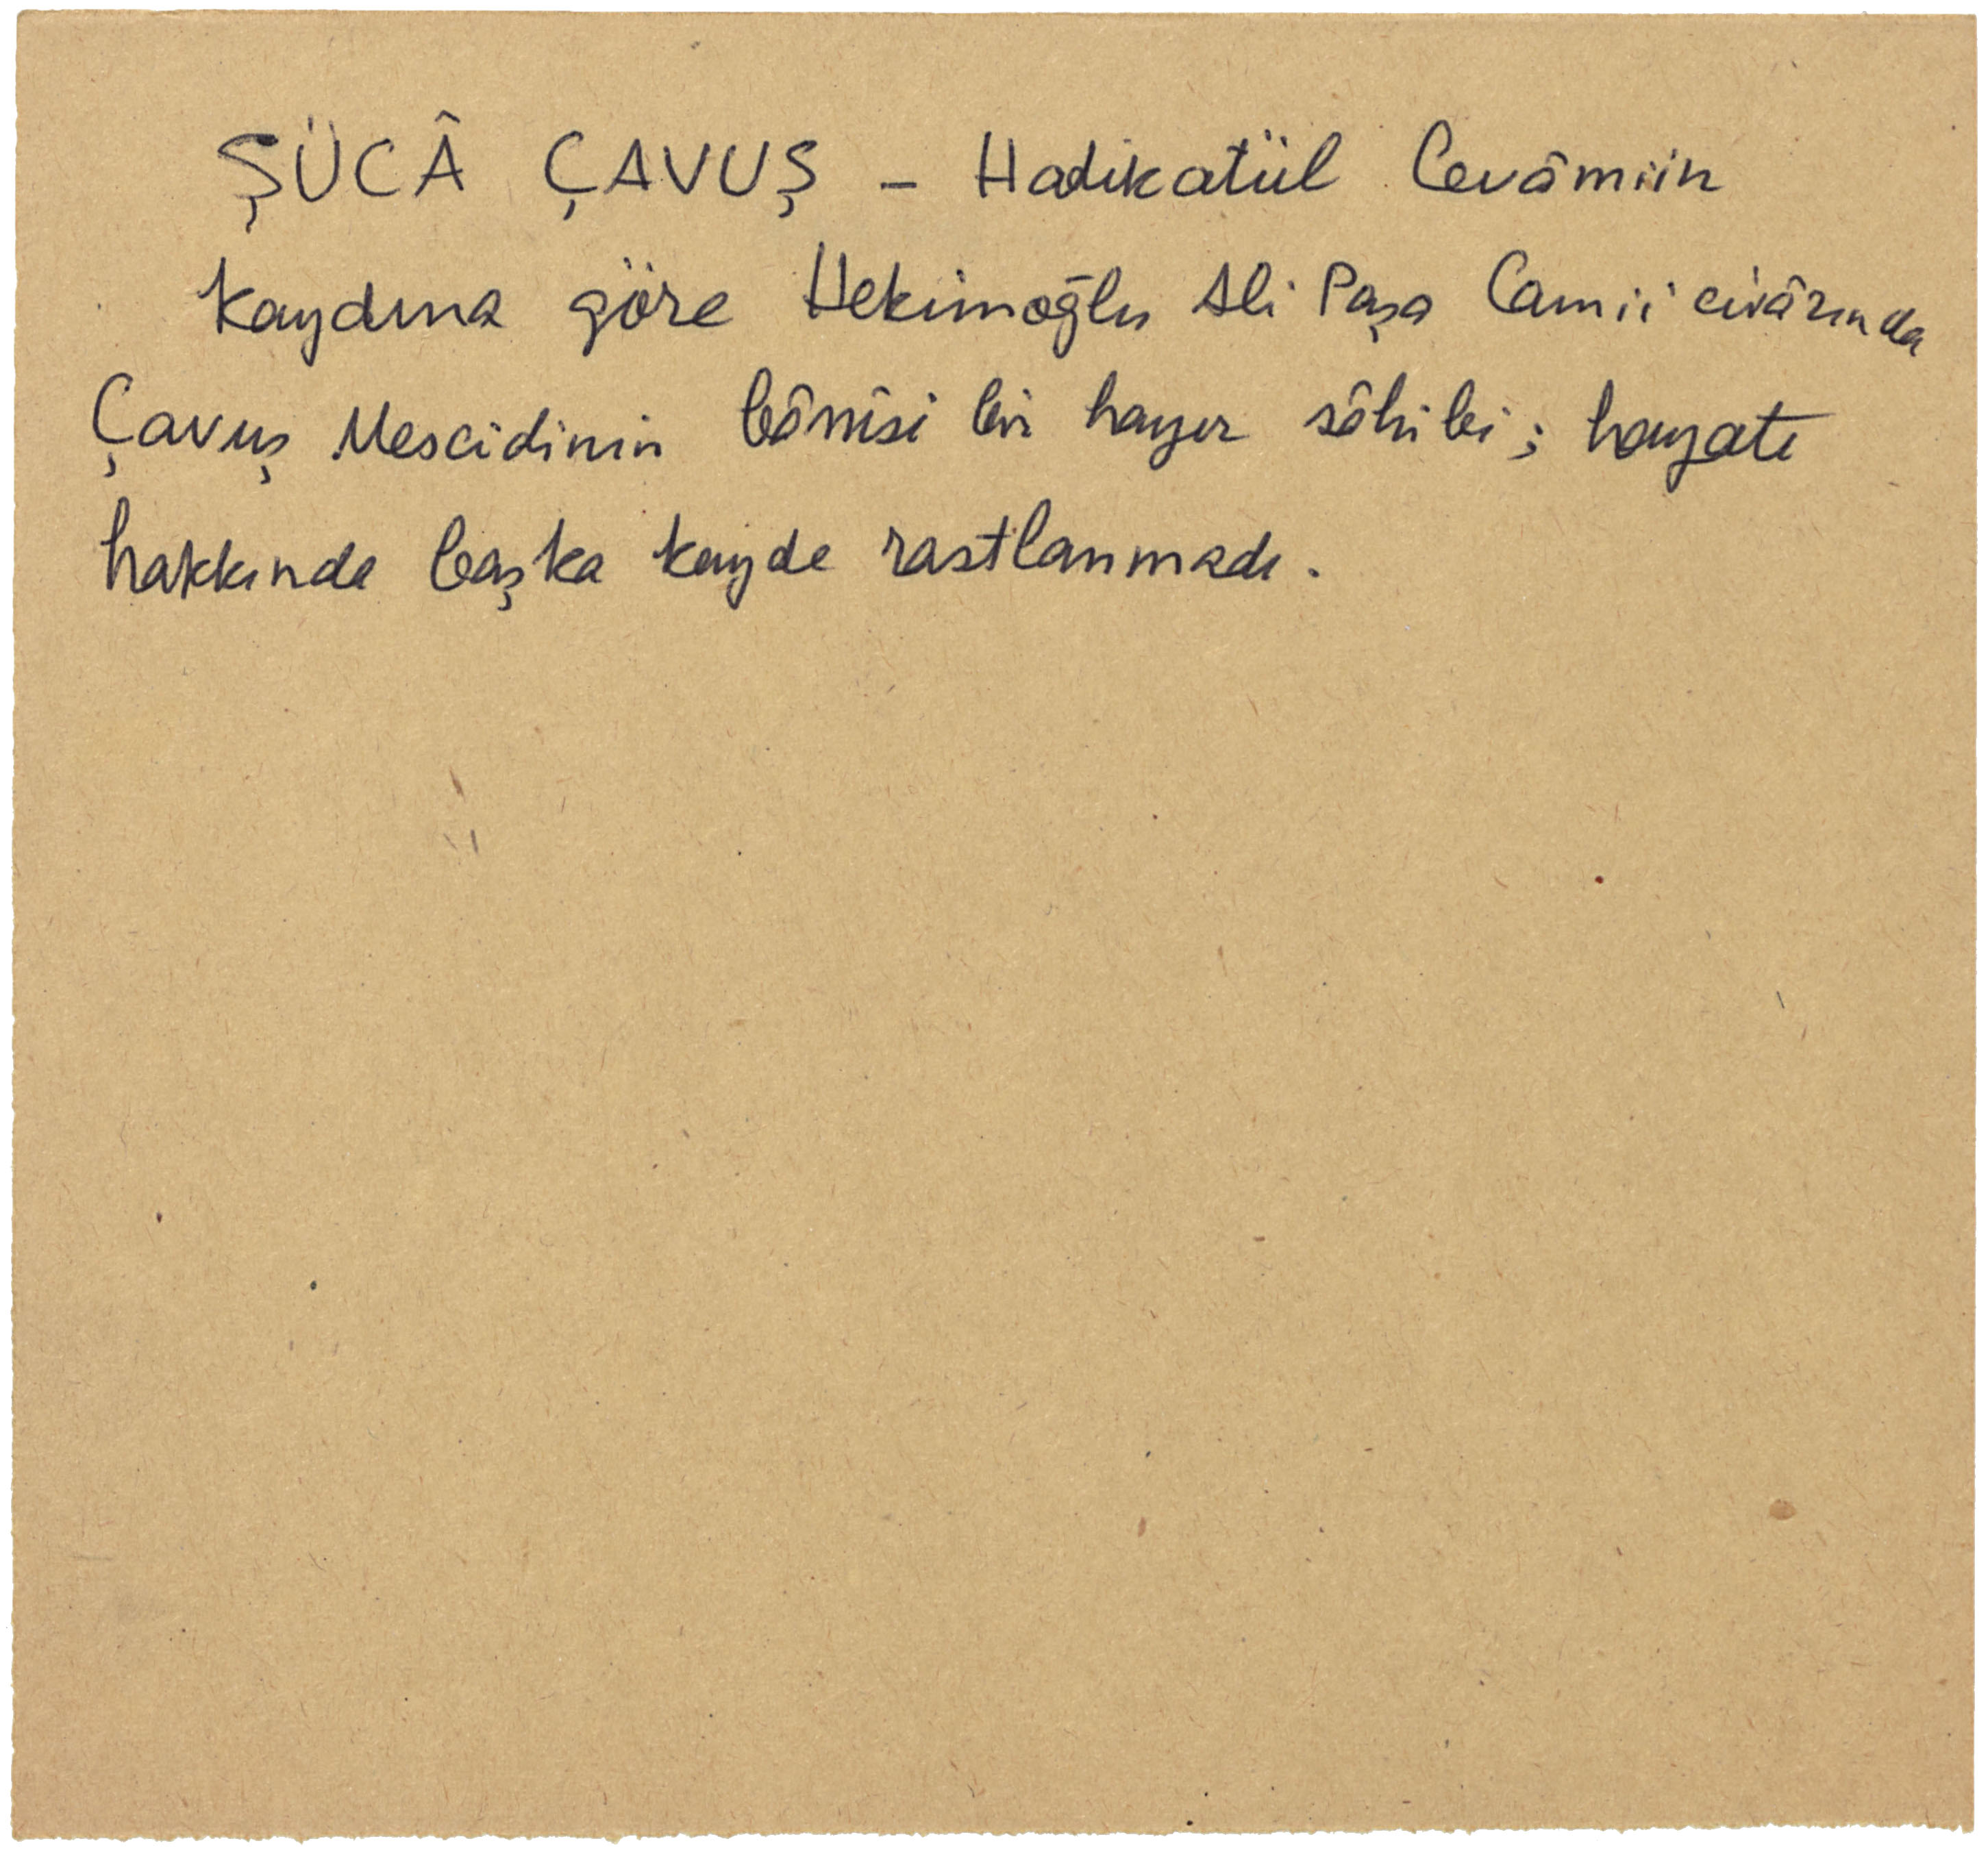 ŞÜCÂ ÇAVUŞ – Hadikatül Cevâmiin
kaydına göre Hekimoğlu Ali Paşa Camii civârında
Çavuş Mescidinin bânîsi bir hayır sâhibi; hayatı
hakkında başka kayde rastlanmadı.